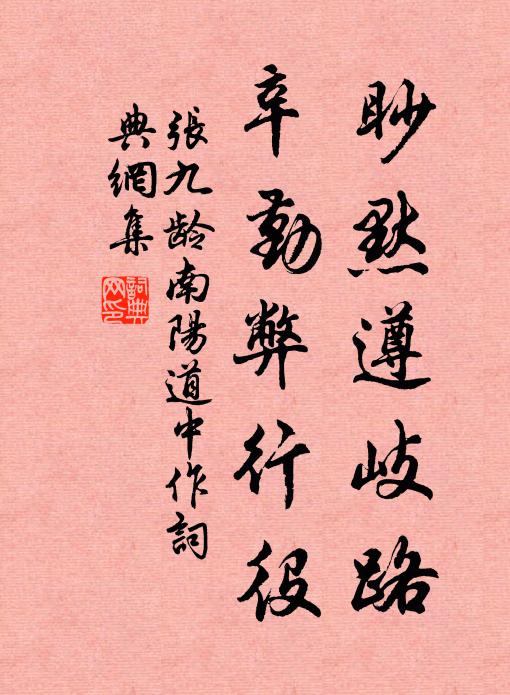 眇默遵岐路
辛勤弊行役
張九龄南陽道中作詞
典網集
詞典
网印